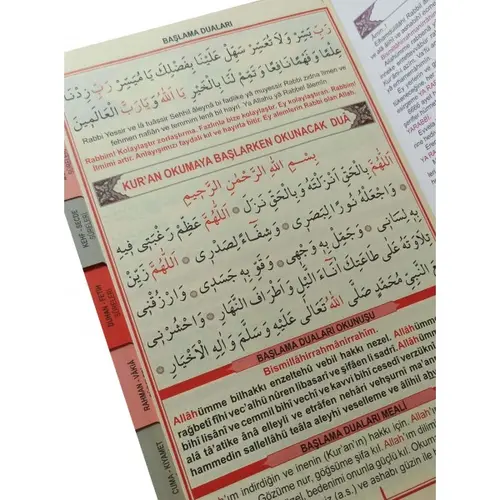 BAŞLAMA DUALARI
رَبِّ يَسِّرْ وَلَا تُعَسِّرْ سَهِّلْ عَلَيْنَا بِفَضْلِكَ يَا مُيَسِّرُ رَبِّ زِدْنِي
عِلْمًا وَفَهْمًا نَافِعًا وَتَمِّمْ لَنَا بِالْخَيْرِ يَا اَللهُ وَيَا رَبَّ الْعَالَمِينَ
Rabbi Yessir ve lâ tuâssir Sehhil aleynâ bi fadlike yâ müyessir Rabbi zidna ilmen ve
fehmen nafiân ve temmim lenâ bil hayri. Ya Allahu yâ Rabbel âlemîn.
Rabbim! Kolaylaştır zorlaştırma. Fazlınla bize kolaylaştır. Ey kolaylaştıran Rabbim!
İlmimi artır. Anlayışımızı faydalı kıl ve hayırla bitir. Ey alemlerin Rabbi olan Allah.
KUR'AN OKUMAYA BAŞLARKEN OKUNACAK DUÂ
بِسْمِ اللهِ الرَّحْمٰنِ الرَّحِيمِ
اَللّٰهُمَّ بِالْحَقِّ اَنْزَلْتَهُ وَبِالْحَقِّ نَزَلَ اَللّٰهُمَّ عَظِّمْ رَغْبَتِي فِيهِ
وَاجْعَلْهُ نُورًا لِبَصَرِي وَشِفَاءً لِصَدْرِي اَللّٰهُمَّ زَيِّنْ
بِهِ لِسَانِي وَجَمِّلْ بِهِ وَجْهِي وَقَوِّ بِهِ جَسَدِي وَارْزُقْنِي
عَلَى طَاعَتِكَ اٰنَاءَ الَّيْلِ وَاَطْرَافَ النَّهَارِ وَاحْشُرْنِي
النَّبِيِّ مُحَمَّدٍ صَلَّى اللهُ تَعَالَى عَلَيْهِ وَسَلَّمَ وَاٰلِهِ الْاَخْيَارِ
BAŞLAMA DUALARI OKUNUŞU
Bismillâhirrahmânirrahîm.
Allâhümme bilhakkı enzeltehü vebil hakkı nezel. Allâhümme
rağbetî fîhi vec'alhü nûren libasarî ve şifâen li sadrî.
bihî lisânî ve cemmil bihî vechî ve kavvi bihî cesedî verzüknî
alâ tâ'atike ânâ elleyli ve etrâfen nehâri vehşurnî ma'an
hammedin sallellâhü teâla aleyhi veselleme ve âlihil
BAŞLAMA DUALARI MEALİ
indirdiğin ve inenin (Kur'an'ın) hakkı için.
Gözüme nur, göğsüme şifa kıl. Allah'ım dilimi
bedenimi onunla güçlü kıl.
(a.s.) ve ashabı güzin ile
KEHF - SECDE
SÛRELERİ
DUHAN - FETİH
SÛRELERİ
RAHMAN - VÂKIA
CUMA - KIYAMET